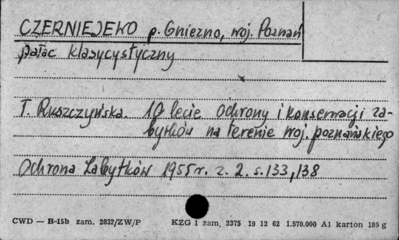 CZERNIEJEWO p. Gniezno, woj. Poznań
pałac klasycystyczny
T. Ruszczyńska. 10 lecie ochrony i konserwacji za-
bytków na terenie woj. poznańskiego
Ochrona Zabytków 1955 r. z. 2. s. 133, 138
CWD — B-15b zam. 2832/ZW/P KZG 1 zam. 3375 19 12 62 1.570.000 A1 karton 180 g